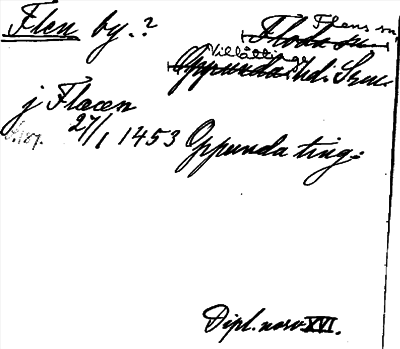 Flen by.?
Flens sn
Floda sn.
Villåttinge
Oppunda hd. Srm.
j Flæen
27/1 1453 Oppunda ting:
Dipl. norv. XVI.